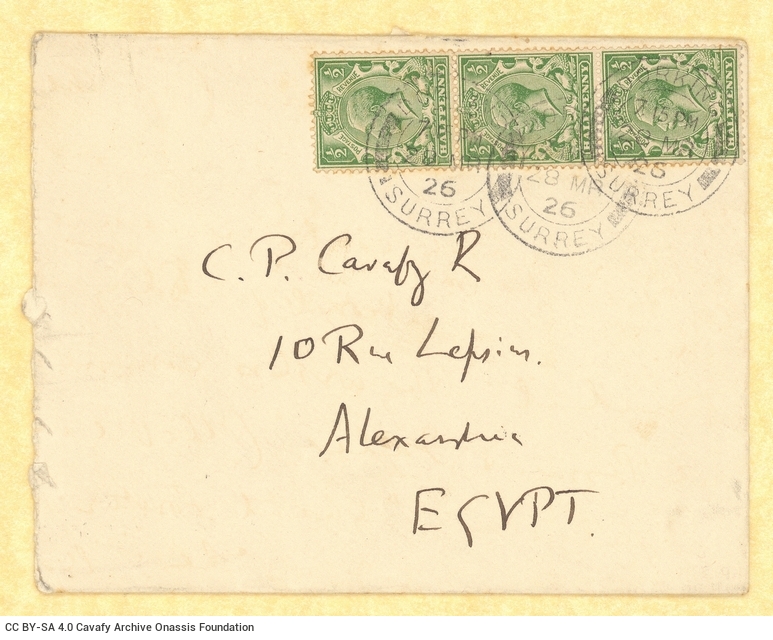 ½ ½ ½ ½ ½ ½
POSTAGE REVENUE POSTAGE REVENUE POSTAGE REVENUE
HALFPENNY HALFPENNY HALFPENNY
26 SURREY
28 MR 26 SURREY
DORKING 7.15 PM 28 MR 26 SURREY
C. P. Cavafy R
10 Rue Lepsius.
Alexandria
EGYPT.
CC BY-SA 4.0 Cavafy Archive Onassis Foundation